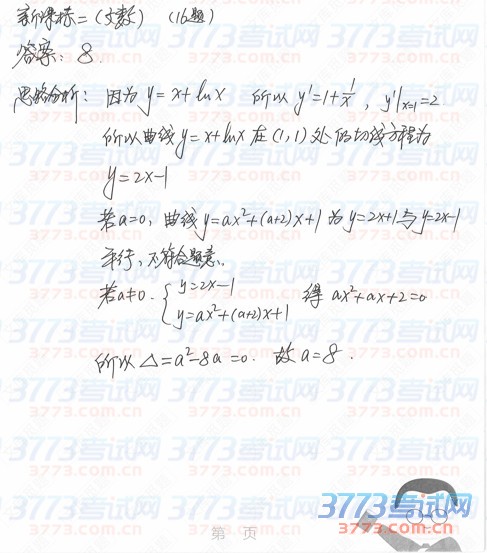 新课标二(文数) (16题)
答案: 8.
思路分析: 因为y=x+lnx 所以y'=1+1/x, y'|x=1=2
所以曲线y=x+lnx在(1,1)处的切线方程为
y=2x-1
若a=0, 曲线y=ax²+(a+2)x+1为y=2x+1与y=2x-1
平行, 不符合题意.
若a≠0. { y=2x-1
y=ax²+(a+2)x+1 得 ax²+ax+2=0
所以△=a²-8a=0. 故a=8.
3773考试网
3773.com.cn
第 页